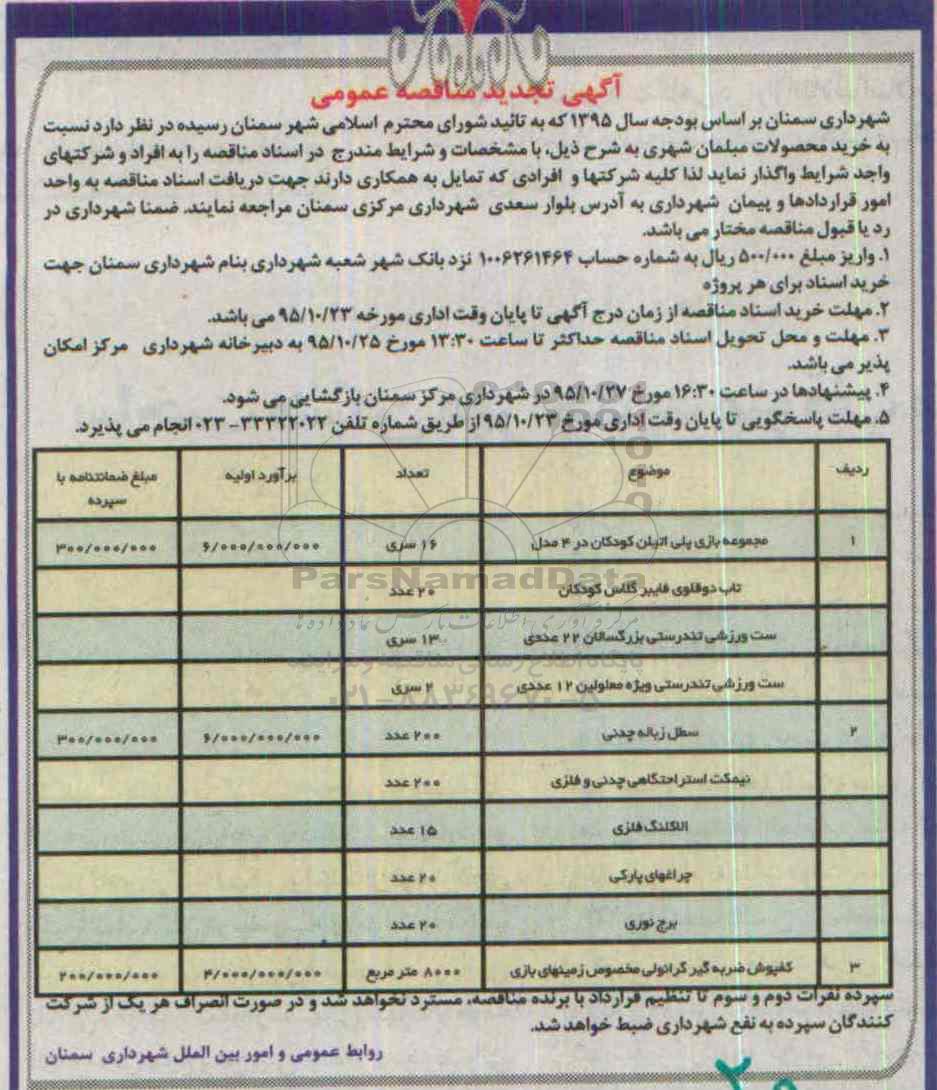 آگهی تجدید مناقصه عمومی
شهرداری سمنان بر اساس بودجه سال ۱۳۹۵ که به تائید شورای محترم اسلامی شهر سمنان رسیده در نظر دارد نسبت
به خرید محصولات مبلمان شهری به شرح ذیل، با مشخصات و شرایط مندرج در اسناد مناقصه را به افراد و شرکتهای
واجد شرایط واگذار نماید لذا کلیه شرکتها و افرادی که تمایل به همکاری دارند جهت دریافت اسناد مناقصه به واحد
امور قراردادها و پیمان شهرداری به آدرس بلوار سعدی شهرداری مرکزی سمنان مراجعه نمایند. ضمنا شهرداری در
رد یا قبول مناقصه مختار می باشد.
۱. واریز مبلغ ۵۰۰/۰۰۰ ریال به شماره حساب ۱۰۰۶۲۶۱۴۶۴ نزد بانک شهر شعبه شهرداری بنام شهرداری سمنان جهت
خرید اسناد برای هر پروژه
۲. مهلت خرید اسناد مناقصه از زمان درج آگهی تا پایان وقت اداری مورخه ۹۵/۱۰/۲۳ می باشد.
۳. مهلت و محل تحویل اسناد مناقصه حداکثر تا ساعت ۱۳:۳۰ مورخ ۹۵/۱۰/۲۵ به دبیرخانه شهرداری مرکز امکان
پذیر می باشد.
۴. پیشنهادها در ساعت ۱۶:۳۰ مورخ ۹۵/۱۰/۲۷ در شهرداری مرکز سمنان بازگشایی می شود.
۵. مهلت پاسخگویی تا پایان وقت اداری مورخ ۹۵/۱۰/۲۳ از طریق شماره تلفن ۳۳۳۲۲۰۲۲-۰۲۳ انجام می پذیرد.
ردیف موضوع تعداد برآورد اولیه مبلغ ضمانتنامه یا
سپرده
۱ مجموعه بازی پلی اتیلن کودکان در ۴ مدل ۱۶ سری ۶/۰۰۰/۰۰۰/۰۰۰ ۳۰۰/۰۰۰/۰۰۰
تاب دوقلوی فایبر گلاس کودکان ۲۰ عدد
ParsNamadData
مرکز فرآوری اطلاعات پارس نماد داده ها
ست ورزشی تندرستی بزرگسالان ۲۲ عددی ۱۳ سری
پایگاه اطلاع رسانی مناقصه و مزایده
ست ورزشی تندرستی ویژه معلولین ۱۲ عددی ۲ سری
۰۲۱-۸۸۳۴۹۶۷۰-۵
۲ سطل زباله چدنی ۲۰۰ عدد ۶/۰۰۰/۰۰۰/۰۰۰ ۳۰۰/۰۰۰/۰۰۰
نیمکت استراحتگاهی چدنی و فلزی ۲۰۰ عدد
الاکلنگ فلزی ۱۵ عدد
چراغهای پارکی ۲۰ عدد
برج نوری ۲۰ عدد
۳ کفپوش ضربه گیر گرانولی مخصوص زمینهای بازی ۸۰۰۰ متر مربع ۴/۰۰۰/۰۰۰/۰۰۰ ۲۰۰/۰۰۰/۰۰۰
سپرده نفرات دوم و سوم تا تنظیم قرارداد با برنده مناقصه، مسترد نخواهد شد و در صورت انصراف هر یک از شرکت
کنندگان سپرده به نفع شهرداری ضبط خواهد شد.
روابط عمومی و امور بین الملل شهرداری سمنان